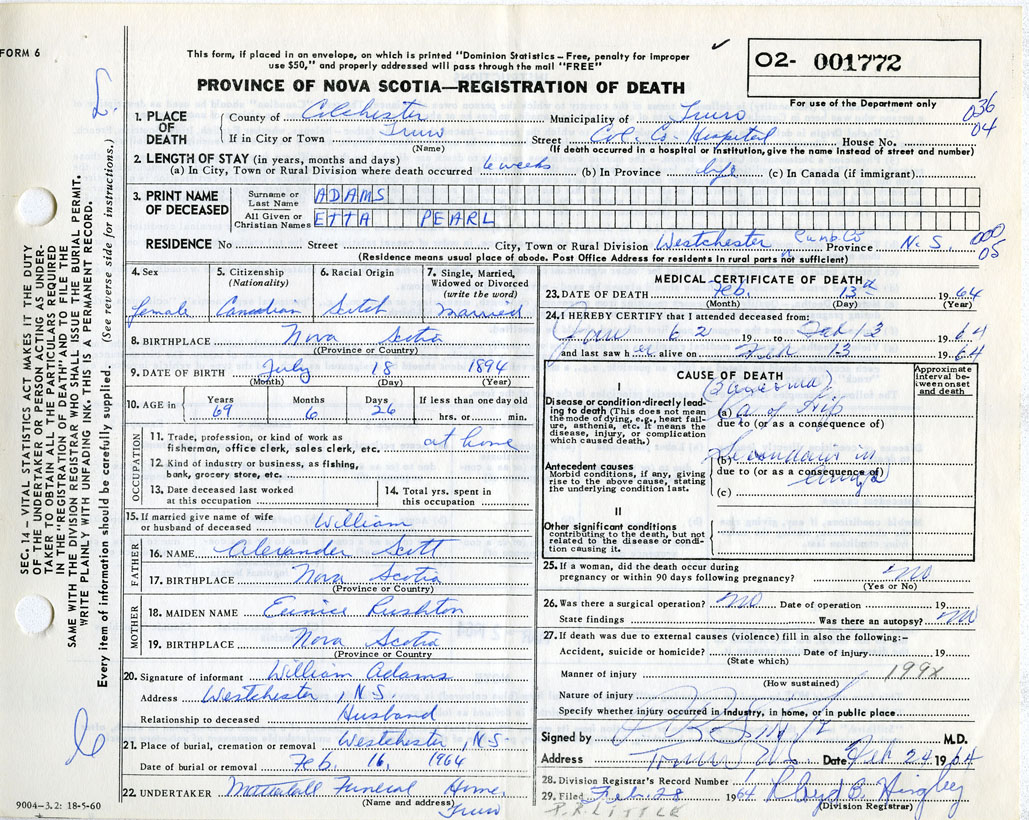 FORM 6
This form, if placed in an envelope, on which is printed "Dominion Statistics – Free, penalty for improper
use $50," and properly addressed will pass through the mail "FREE"
PROVINCE OF NOVA SCOTIA—REGISTRATION OF DEATH
O2- 001772
For use of the Department only
036
04
1. PLACE OF DEATH
County of Colchester Municipality of Truro
If in City or Town Truro Street Col. Co. Hospital House No.
(Name) (If death occurred in a hospital or institution, give the name instead of street and number)
2. LENGTH OF STAY (in years, months and days)
(a) In City, Town or Rural Division where death occurred 6 weeks (b) In Province life (c) In Canada (if immigrant)
3. PRINT NAME OF DECEASED
Surname or Last Name ADAMS
All Given or Christian Names ETTA PEARL
RESIDENCE No Street City, Town or Rural Division Westchester Cumb Co Province N.S. 000
05
(Residence means usual place of abode. Post Office Address for residents in rural parts not sufficient)
4. Sex Female
5. Citizenship (Nationality) Canadian
6. Racial Origin Scotch
7. Single, Married, Widowed or Divorced (write the word) Married
8. BIRTHPLACE Nova Scotia
(Province or Country)
9. DATE OF BIRTH July 18 1894
(Month) (Day) (Year)
10. AGE in Years 69 Months 6 Days 26 If less than one day old hrs. or min.
OCCUPATION
11. Trade, profession, or kind of work as
fisherman, office clerk, sales clerk, etc. at home
12. Kind of industry or business, as fishing,
bank, grocery store, etc.
13. Date deceased last worked
at this occupation
14. Total yrs. spent in
this occupation
15. If married give name of wife
or husband of deceased William
FATHER
16. NAME Alexander Scott
17. BIRTHPLACE Nova Scotia
(Province or Country)
MOTHER
18. MAIDEN NAME Eunice Rushton
19. BIRTHPLACE Nova Scotia
(Province or Country)
20. Signature of informant William Adams
Address Westchester, N.S.
Relationship to deceased Husband
21. Place of burial, cremation or removal Westchester, N.S.
Date of burial or removal Feb. 16, 1964
22. UNDERTAKER Mattatall Funeral Home,
(Name and address) Truro
9004-3.2: 18-5-60
MEDICAL CERTIFICATE OF DEATH
23. DATE OF DEATH Feb. 13 1964
(Month) (Day) (Year)
24. I HEREBY CERTIFY that I attended deceased from:
62 to Feb 13 1964
and last saw her alive on Feb 13 1964
CAUSE OF DEATH
Approximate interval between onset and death
I
Disease or condition directly leading to death (This does not mean the mode of dying, e.g., heart failure, asthenia, etc. It means the disease, injury, or complication which caused death.)
(a)
due to (or as a consequence of)
Antecedent causes
Morbid conditions, if any, giving rise to the above cause, stating the underlying condition last.
(b) Secondaries in
due to (or as a consequence of)
lungs
(c)
II
Other significant conditions
contributing to the death, but not related to the disease or condition causing it.
25. If a woman, did the death occur during
pregnancy or within 90 days following pregnancy? No
(Yes or No)
26. Was there a surgical operation? No Date of operation 19
State findings Was there an autopsy? No
27. If death was due to external causes (violence) fill in also the following:–
Accident, suicide or homicide? Date of injury 19
(State which)
Manner of injury 199X
(How sustained)
Nature of injury
Specify whether injury occurred in industry, in home, or in public place
Signed by M.D.
Address Truro N.S. Date Feb 24 1964
28. Division Registrar's Record Number
29. Filed Feb. 28 1964 Lloyd B. Hingley
(Division Registrar)
P.R. LITTLE
SEC. 14 – VITAL STATISTICS ACT MAKES IT THE DUTY
OF THE UNDERTAKER OR PERSON ACTING AS UNDER-
TAKER TO OBTAIN ALL THE PARTICULARS REQUIRED
IN THE "REGISTRATION OF DEATH" AND TO FILE THE
SAME WITH THE DIVISION REGISTRAR WHO SHALL ISSUE THE BURIAL PERMIT.
WRITE PLAINLY WITH UNFADING INK. THIS IS A PERMANENT RECORD.
Every item of information should be carefully supplied. (See reverse side for instructions.)